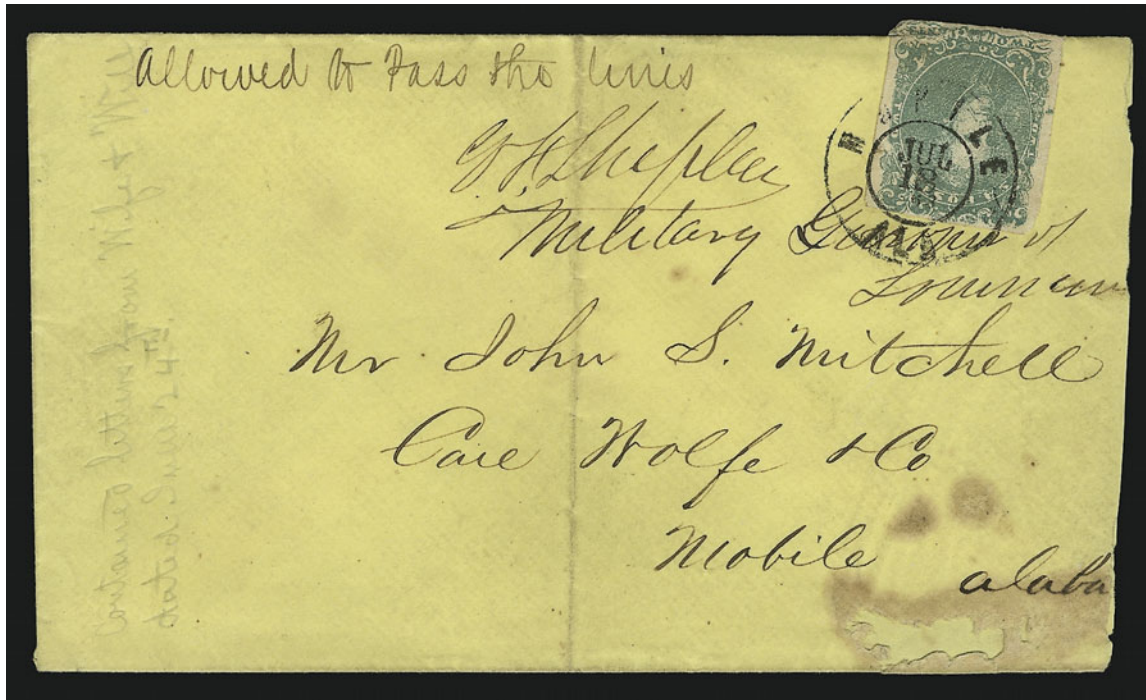 Allowed to Pass the lines
G F Shepley
Military Governor of
Louisiana
Mr John S. Mitchell
Care Wolfe & Co
Mobile alaba
JUL
18
ALA
Contained letters from
dated June 24th.